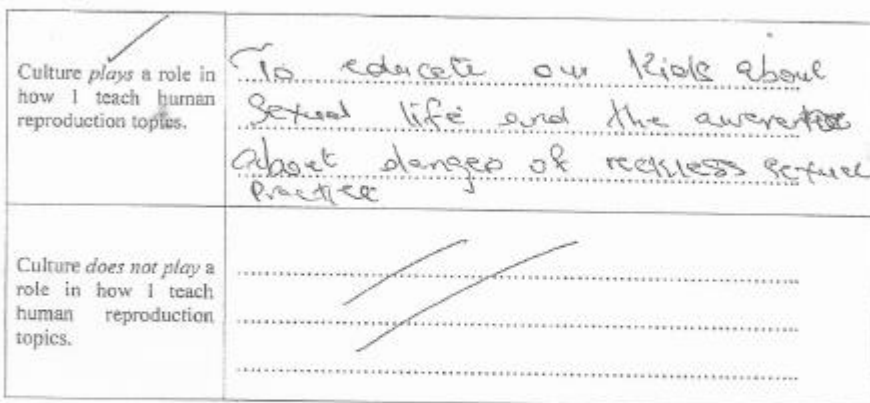 Culture plays a role in
how I teach human
reproduction topics.
To educate our Kids about
Sexual life and the awareness
About danger of reckless sexual
Practice
Culture does not play a
role in how I teach
human reproduction
topics.